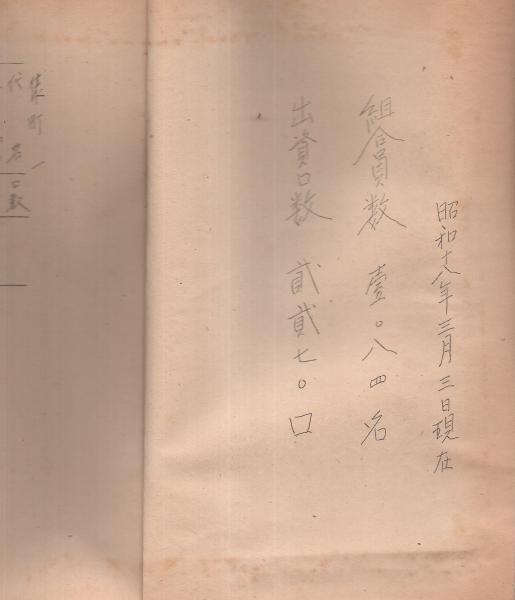 昭和十八年三月三日現在
組合員数 壹〇八四名
出資口数 貳貳七〇口
町
代 名
口数